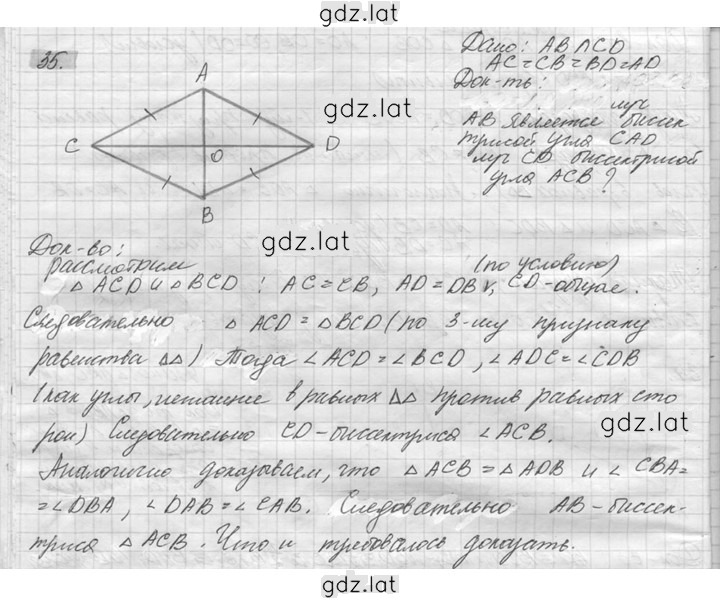 gdz.lat
35.
Дано: AB ∩ CD
AC = CB = BD = AD
Док-ть:
луч
AB является биссек
трисой угла CAD
луч CD биссектрисой
угла ACB?
A
gdz.lat
C
O
D
B
gdz.lat
Док-во:
рассмотрим
(по условию)
△ ACD и △ BCD : AC = CB, AD = DB, CD - общае.
Следовательно △ ACD = △ BCD (по 3-му признаку
равенства △△) Тогда ∠ACD = ∠BCD, ∠ADC = ∠CDB
(как углы, лежащие в равных △△ против равных сто
рон) Следовательно CD - биссектриса ∠ACB.
gdz.lat
Аналогично доказываем, что △ ACB = △ ADB и ∠ CBA =
= ∠DBA, ∠DAB = ∠CAB. Следовательно AB - биссек-
триса △ ACB. Что и требовалось доказать.
gdz.lat